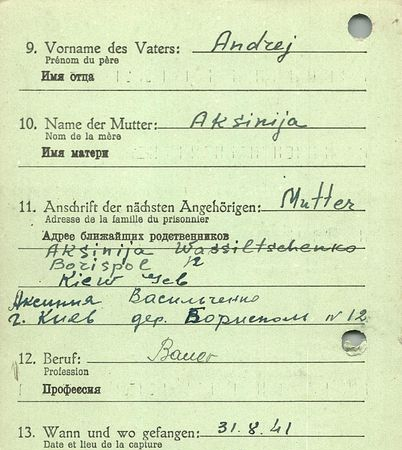 9. Vorname des Vaters: Andrej
Prénom du père
Имя отца
10. Name der Mutter: Aksinija
Nom de la mère
Имя матери
11. Anschrift der nächsten Angehörigen: Mutter
Adresse de la famille du prisonnier
Адрес ближайших родственников
Aksinija Wassiltschenko
Borispol 12
Kiew Geb
Аксиния Васильченко
г. Киев дер. Борисполь N 12
12. Beruf: Bauer
Profession
Профессия
13. Wann und wo gefangen: 31.8.41
Date et lieu de la capture